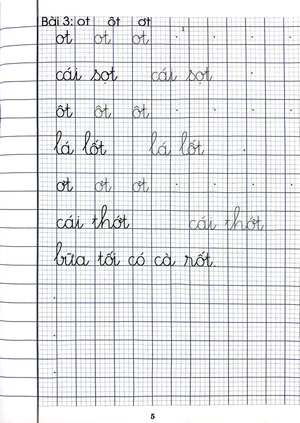 Bài 3: ot ôt ơt
ot ot ot
cái sọt cái sọt
ôt ôt ôt
lá lốt lá lốt
ơt ơt ơt
cái thớt cái thớt
bữa tối có cà rốt.
5